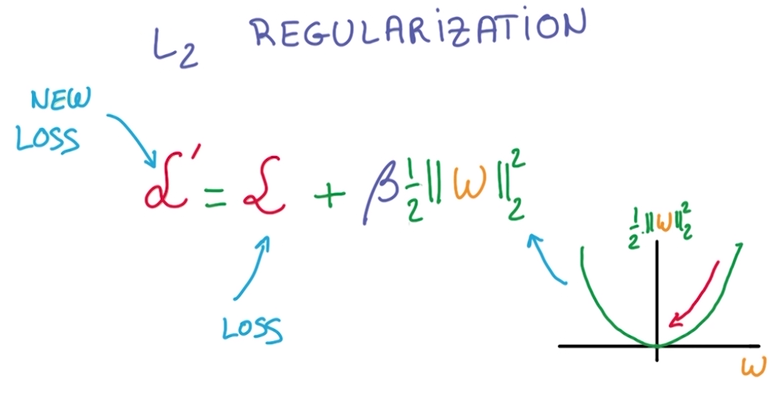 L₂ REGULARIZATION
NEW
LOSS
ℒ′ = ℒ + β½‖w‖₂²
LOSS
½‖w‖₂²
w